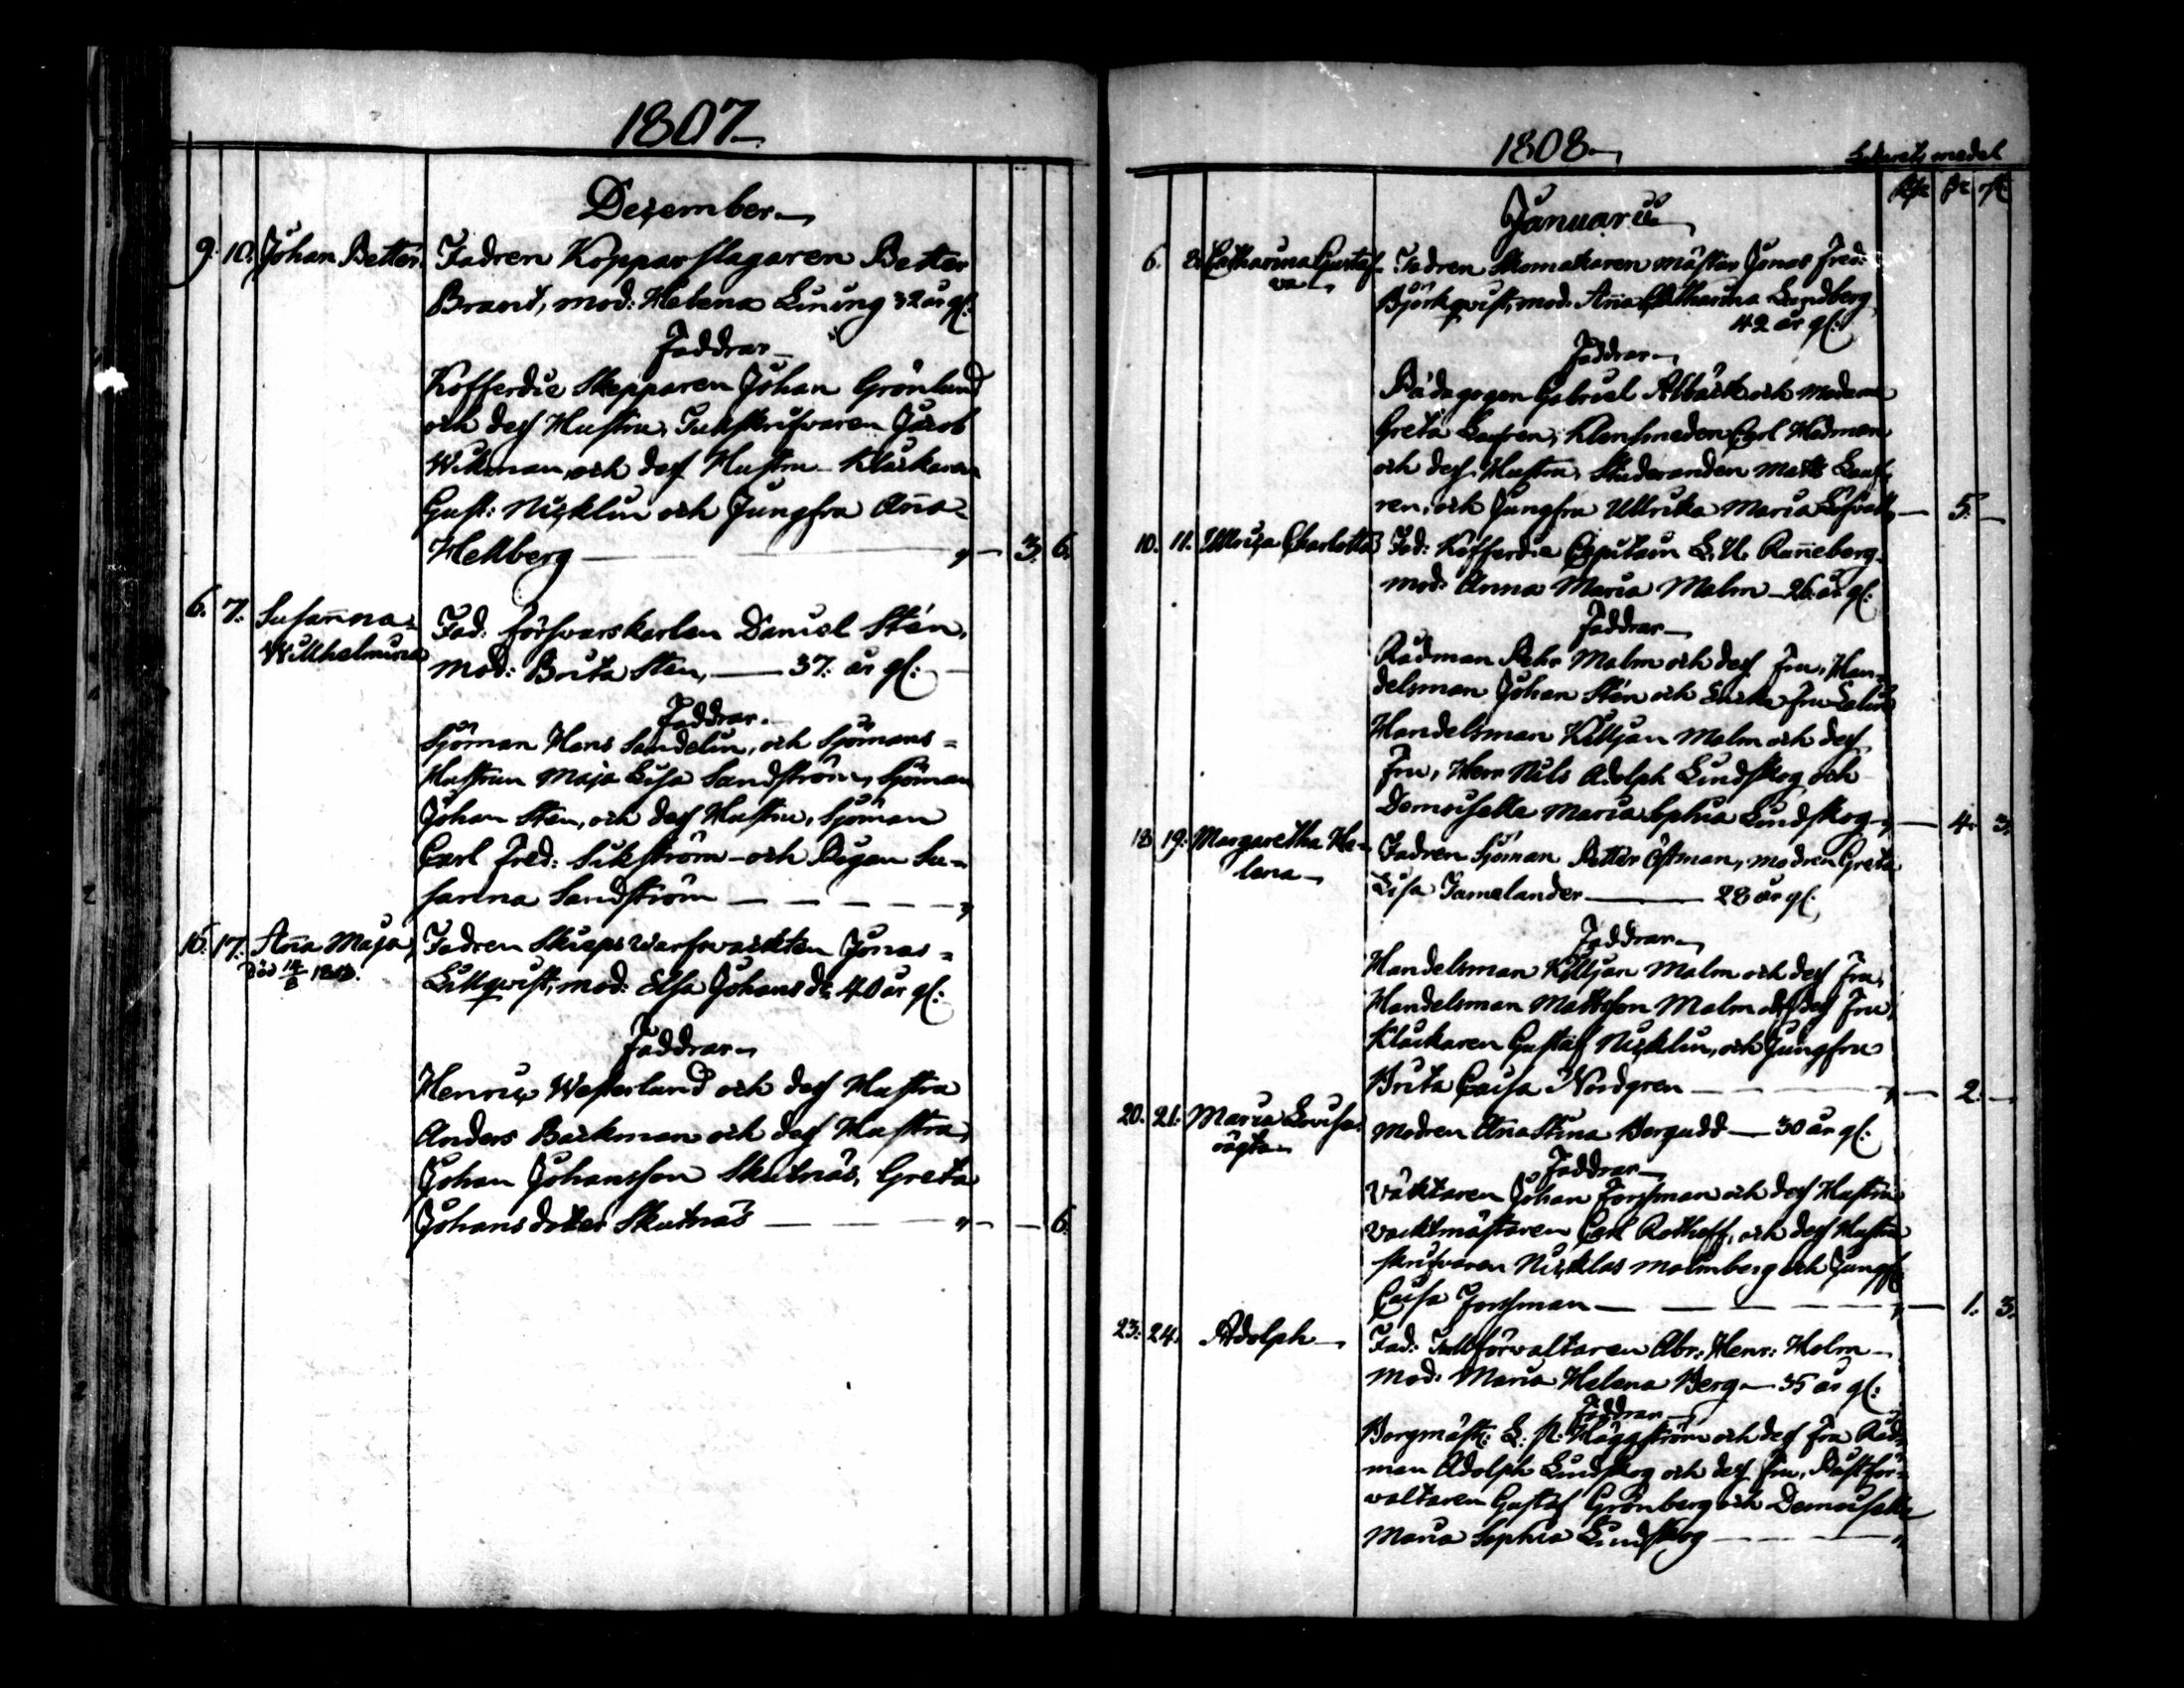 1807
Dezember
9. 10. Johan Petter. Fadren Kopparslagaren Petter
Brant, mod: Helena Lining 32 år gl:
Faddrar
Kofferdie Skepparen Johan Grönlund
och dess Hustru, Tullskrifvaren Jacob
Wikman, och dess Hustru Klåckaren
Gust: Nicklin och Jungfru Aña
Hellberg — 3. 6.
6. 7. Susañna Fad: förswarskarlen Daniel Stén,
Wilhelmina mod: Brita Sten, — 37. år gl:
Faddrar
Sjöman Hans Sandelin, och Sjömans=
Hustrun Maja Lisa Sandström, Sjöman
Johan Sten, och dess Hustru, Sjöman
Carl Fred: Sikström och Pigan Su=
sanna Sandström
16. 17. Aña Maja, Fadren Skieps Warfwackten Jonas=
Död 14/8 Lillqvist, mod: Elsa Johans dr 40 år gl:
Faddrar
Henric Westerlund och dess Hustru
Anders Backman och dess Hustru,
Johan Johansson Skutnäs, Greta
Johansdotter Skutnäs — 6.
1808 medel
Januarii
6. 8. Catharina Gustaf- Fadren Skomakaren mästar Jonas Fred:
va Björkqvist, mod: Aña Catharina Lundberg
42 år gl:
Faddrar
Pädagogen Gabriel Abbäck och Madame
Greta, Klensmeden Carl Hedman
och dess Hustru, Studeranden Matts
ren, och Jungfru Ullrika Maria — 5. —
10. 11. Ulrica Charlotta Fad: Kofferdie Capitain L. U. Rañeberg
mod: Anna Maria Malm 26 år gl:
Faddrar
Rådman Pehr Malm och dess Fru, Han-
delsman Johan Stén och Enke fru
Handelsman Killjan Malm och dess
Fru, Herr Nils Adolph Lindskog och
Demoiselle Maria Sophia Lindskog — 4. 3.
18. 19. Margaretha He- Fadren Sjöman Petter Östman, modren Greta
lena Lisa Jamelander — 28 år gl:
Faddrar
Handelsman Killjan Malm och dess Fru,
Handelsman Mattsson Malm och dess Fru,
Klåckaren Gustaf Nicklin, och Jungfru
Brita Caisa Nordgren — 2. —
20. 21. Maria Lovisa Modren Aña Stina Bergudd — 30 år gl:
oägta Faddrar
Väcktaren Johan Forssman och dess Hustru
Vacktmästaren Carl Rothoff, och dess Hustru
skrifvaren Nicklas Malmberg och Jungf:
Caisa Forssman — 1. 3.
23. 24. Adolph Fad: Tullförvaltaren Abr: Henr: Holm
mod: Maria Helena Berg — 35 år gl:
Faddrar
Borgmäst: L: P: Häggström och dess Fru Råd-
man Adolph Lindskog och dess Fru, Postför-
valtaren Gustaf Grönberg och Demoiselle
Maria Sophia Lindskog